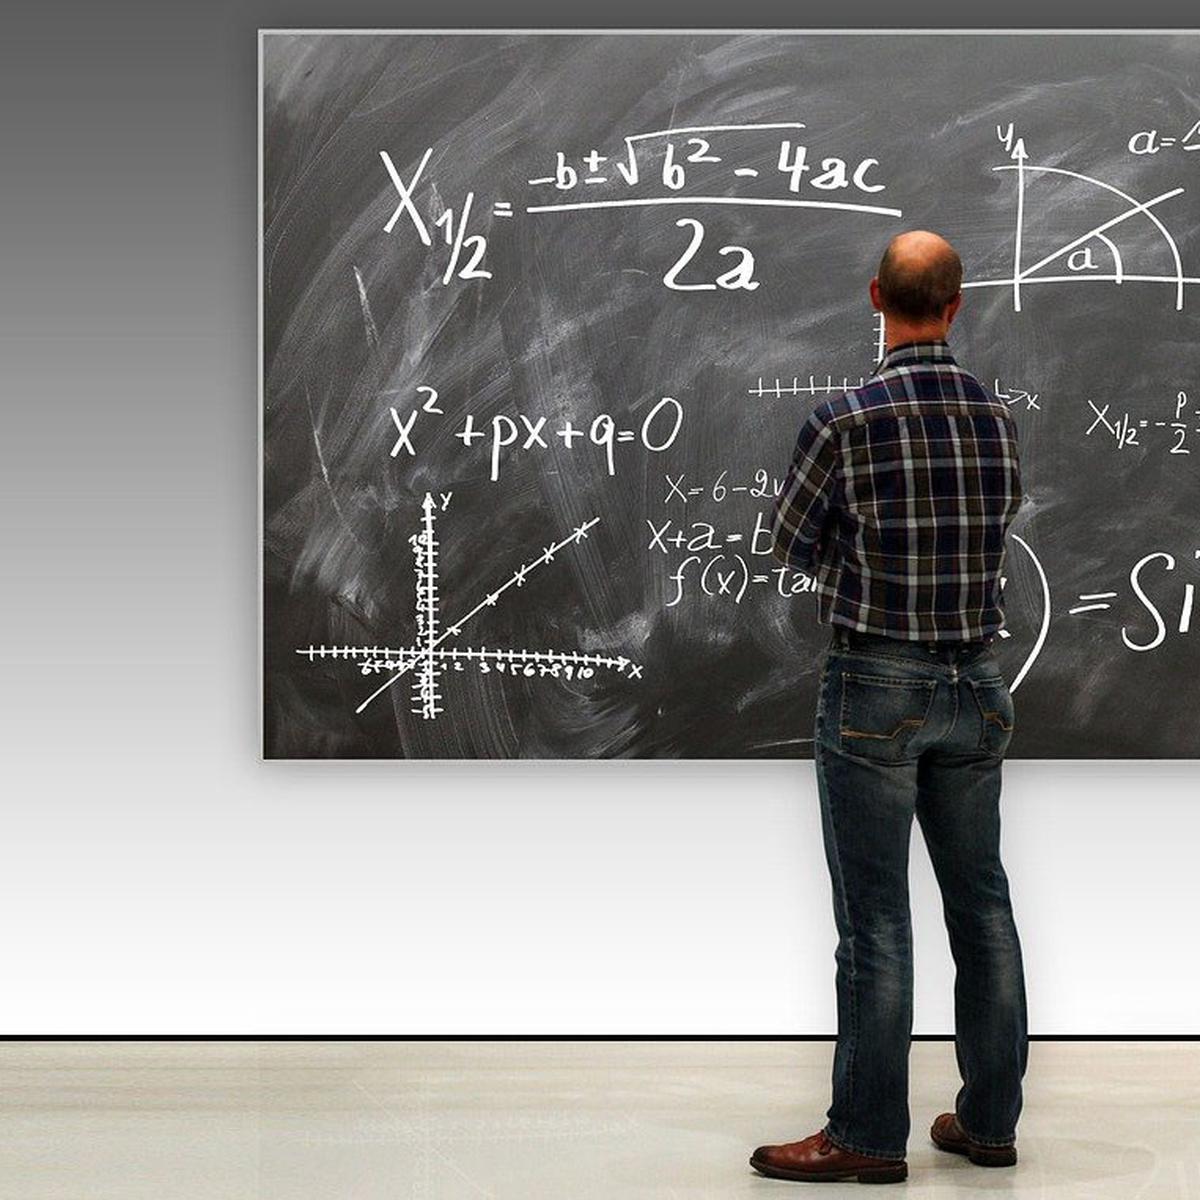 X1/2 = -b±√b² - 4ac / 2a
y
a=
a
x² +px+q=0
x
X1/2=-p/2
X=6-2
X+a=b
f(x)=tan
)=Si
y
1 2 3 4 5 6 7 8 9 10 X